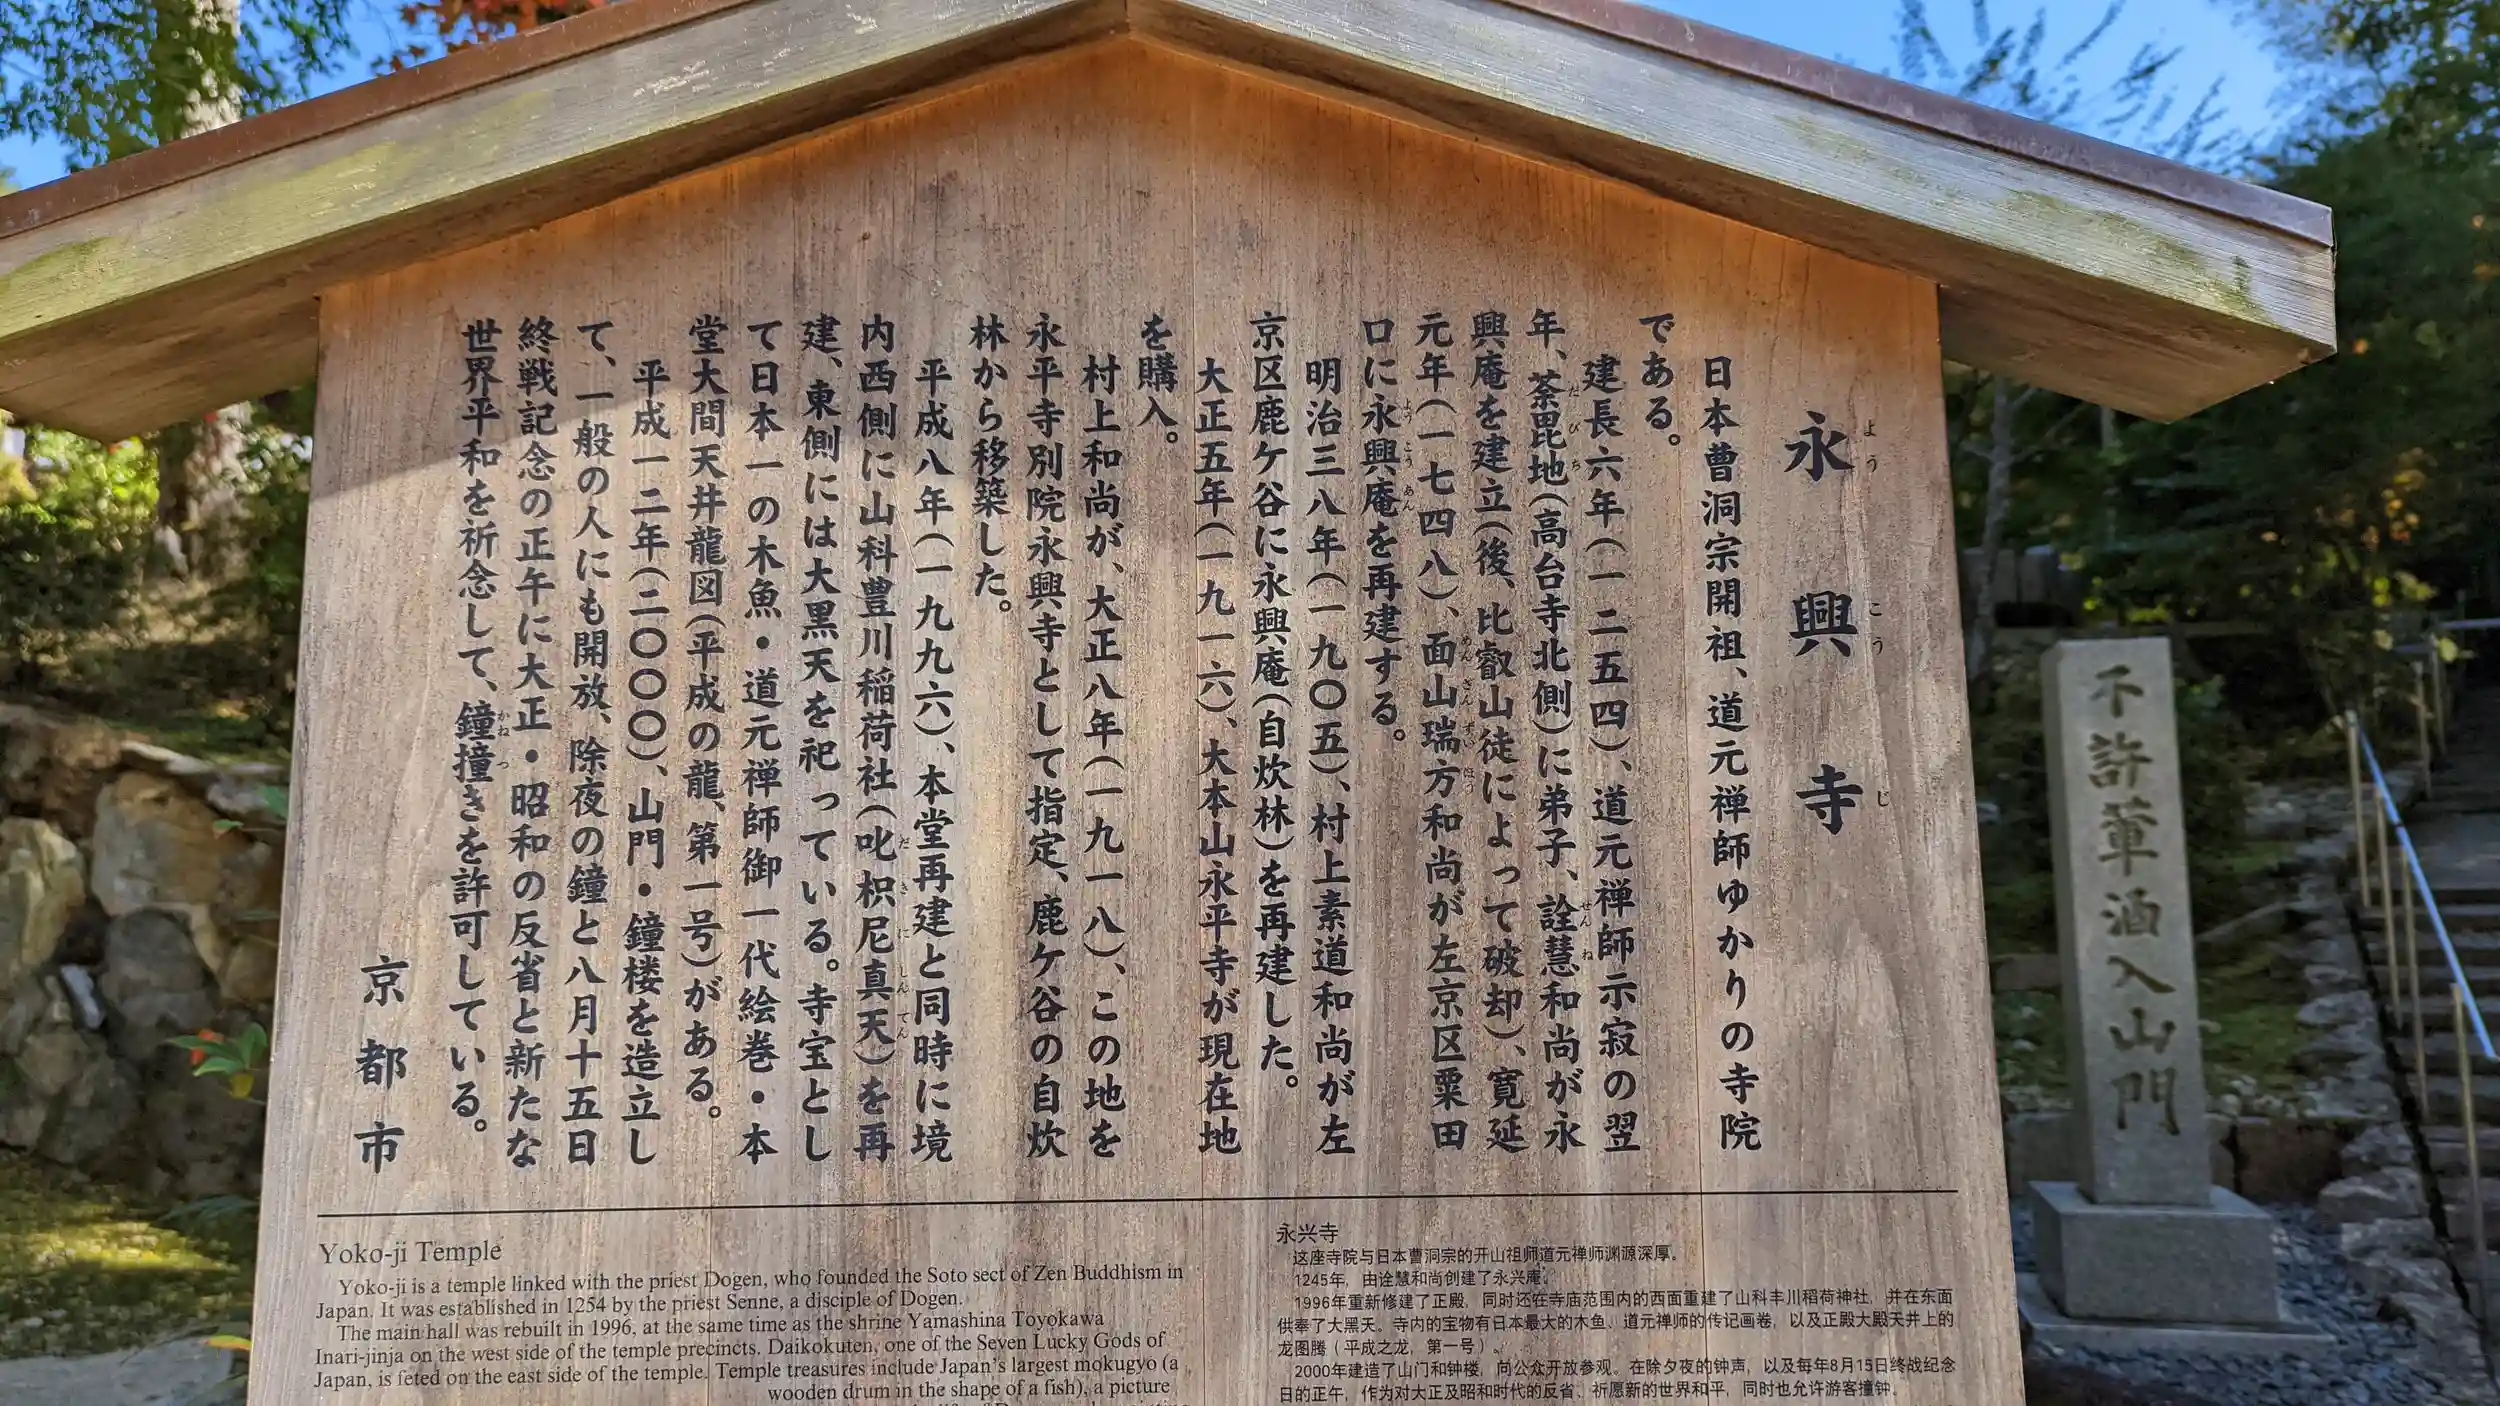 永興寺
ようこうじ
日本曹洞宗開祖、道元禅師ゆかりの寺院
である。
建長六年(一二五四)、道元禅師示寂の翌
年、荼毘地(高台寺北側)に弟子、詮慧和尚が永
興庵を建立(後、比叡山徒によって破却)、寛延
元年(一七四八)、面山瑞方和尚が左京区粟田
口に永興庵を再建する。
明治三八年(一九〇五)、村上素道和尚が左
京区鹿ケ谷に永興庵(自炊林)を再建した。
大正五年(一九一六)、大本山永平寺が現在地
を購入。
村上和尚が、大正八年(一九一八)、この地を
永平寺別院永興寺として指定、鹿ケ谷の自炊
林から移築した。
平成八年(一九九六)、本堂再建と同時に境
内西側に山科豊川稲荷社(叱枳尼真天)を再
建、東側には大黒天を祀っている。寺宝とし
て日本一の木魚・道元禅師御一代絵巻・本
堂大間天井龍図(平成の龍、第一号)がある。
平成一二年(二〇〇〇)、山門・鐘楼を造立し
て、一般の人にも開放、除夜の鐘と八月十五日
終戦記念の正午に大正・昭和の反省と新たな
世界平和を祈念して、鐘撞きを許可している。
京都市
Yoko-ji Temple
Yoko-ji is a temple linked with the priest Dogen, who founded the Soto sect of Zen Buddhism in
Japan. It was established in 1254 by the priest Senne, a disciple of Dogen.
The main hall was rebuilt in 1996, at the same time as the shrine Yamashina Toyokawa
Inari-jinja on the west side of the temple precincts. Daikokuten, one of the Seven Lucky Gods of
Japan, is feted on the east side of the temple. Temple treasures include Japan's largest mokugyo (a
wooden drum in the shape of a fish), a picture
永兴寺
这座寺院与日本曹洞宗的开山祖师道元禅师渊源深厚。
1245年，由诠慧和尚创建了永兴庵。
1996年重新修建了正殿，同时还在寺庙范围内的西面重建了山科丰川稻荷神社，并在东面
供奉了大黑天。寺内的宝物有日本最大的木鱼、道元禅师的传记画卷，以及正殿大殿天井上的
龙图腾（平成之龙，第一号）。
2000年建造了山门和钟楼，向公众开放参观。在除夕夜的钟声，以及每年8月15日终战纪念
日的正午，作为对大正及昭和时代的反省、祈愿新的世界和平，同时也允许游客撞钟。
不許葷酒入山門